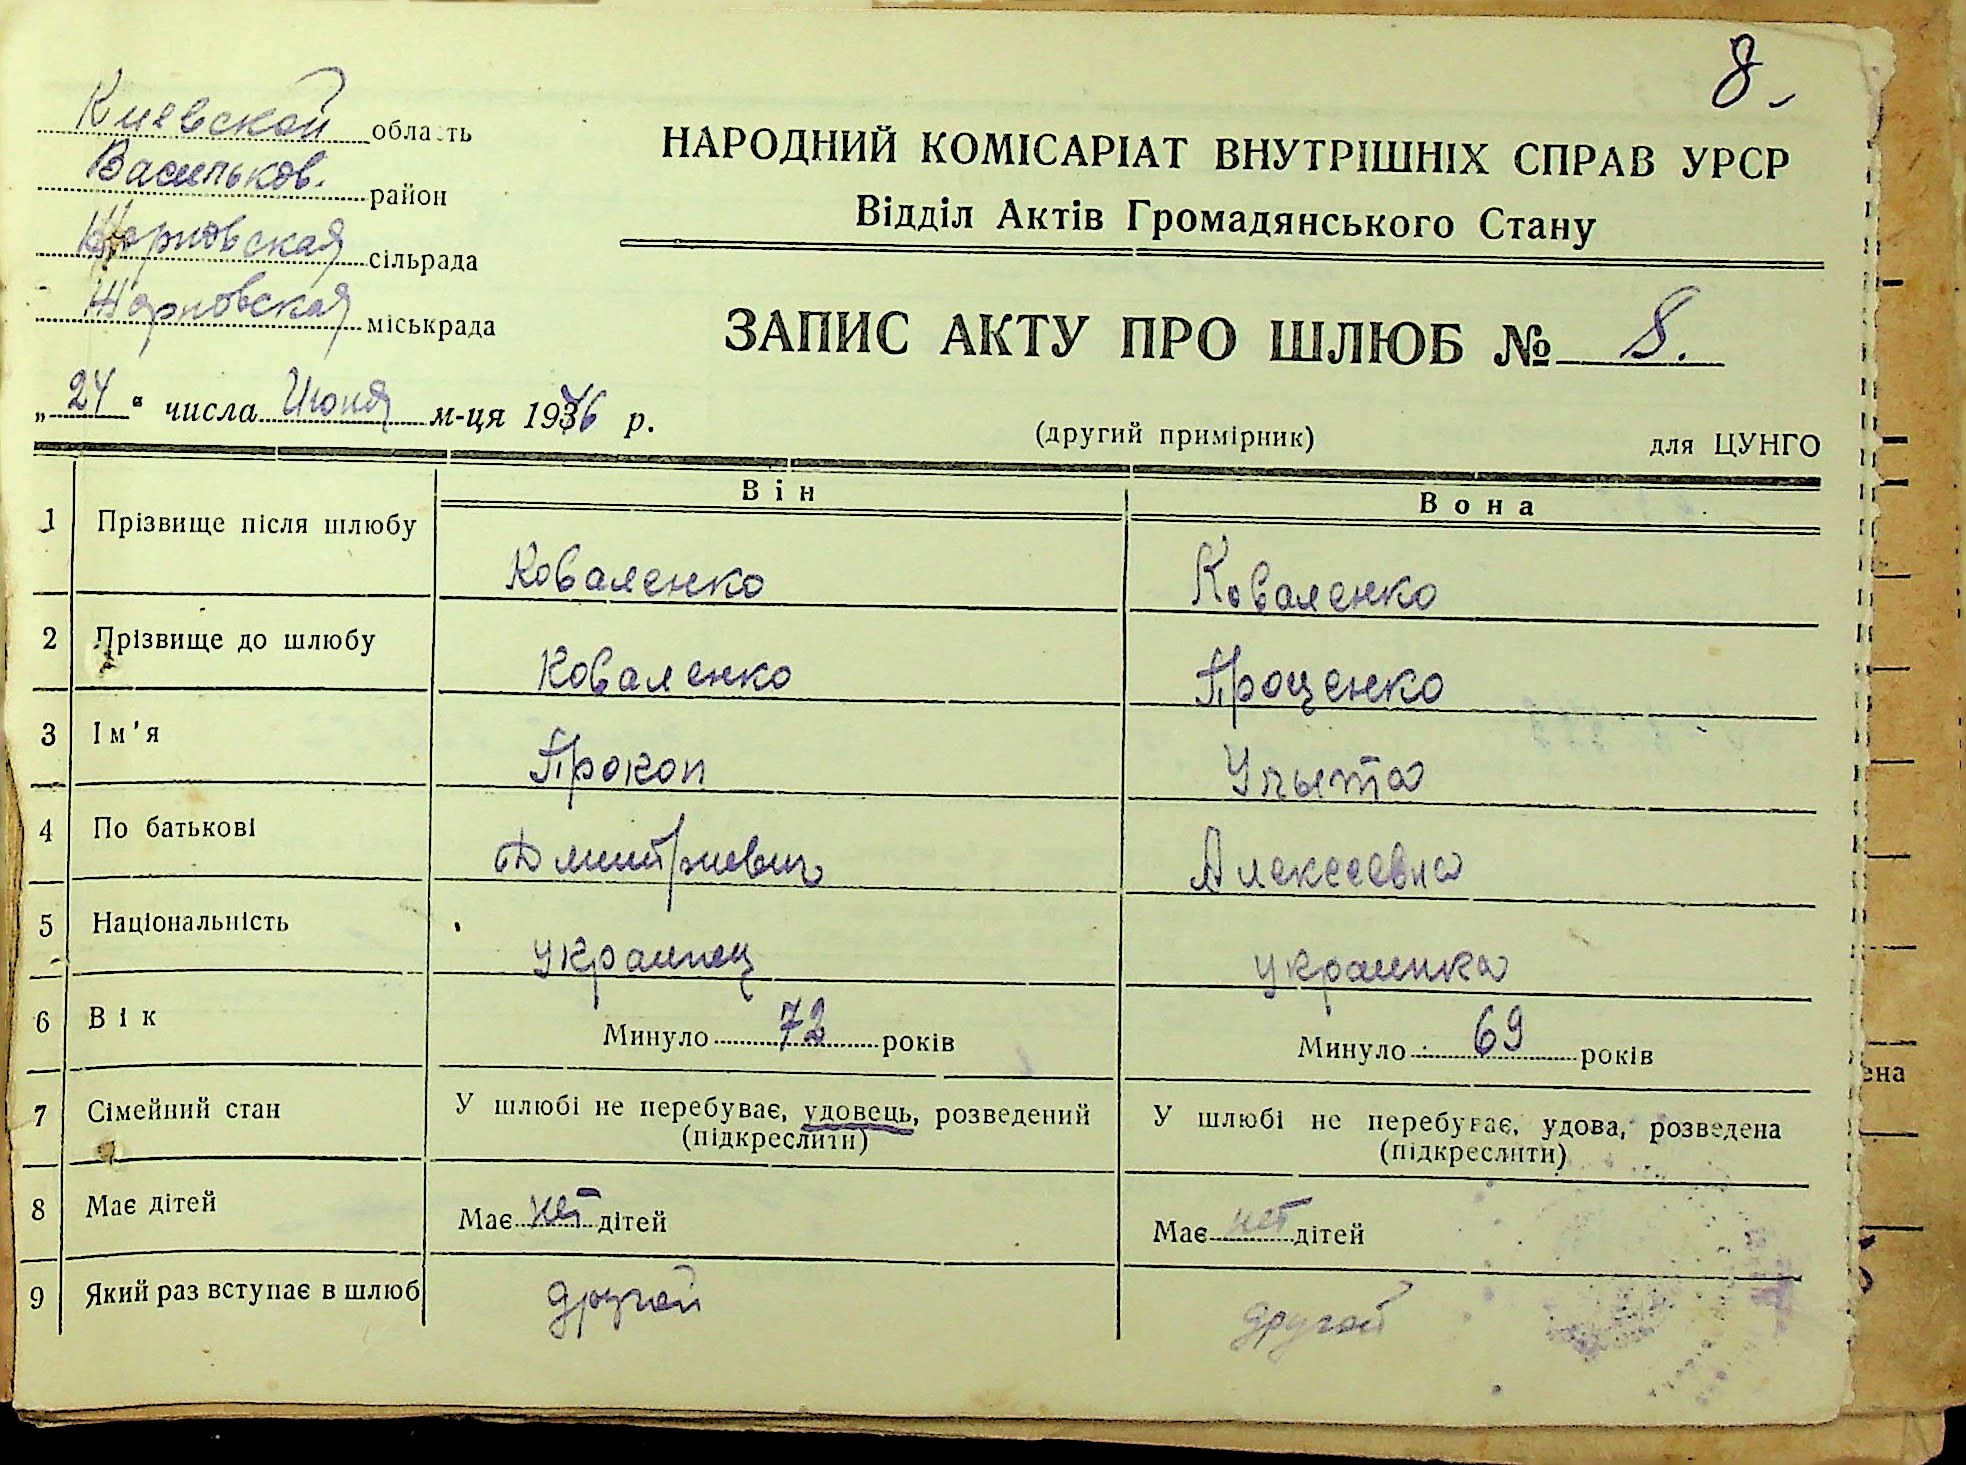 8.
Киевской область
Васильков. район
сільрада
міськрада
НАРОДНИЙ КОМІСАРІАТ ВНУТРІШНІХ СПРАВ УРСР
Відділ Актів Громадянського Стану
ЗАПИС АКТУ ПРО ШЛЮБ № 8.
„24“ числа Июня м-ця 1946 р.
(другий примірник) для ЦУНГО
Він Вона
1 Прізвище після шлюбу Коваленко Коваленко
2 Прізвище до шлюбу Коваленко Проценко
3 Ім'я Прокоп
4 По батькові Дмитриевич Алексеевна
5 Національність украинец украинка
6 Вік Минуло 72 років Минуло 69 років
7 Сімейний стан У шлюбі не перебуває, удовець, розведений У шлюбі не перебуває, удова, розведена
(підкреслити) (підкреслити)
8 Має дітей Має нет дітей Має нет дітей
9 Який раз вступає в шлюб другой другой
ена